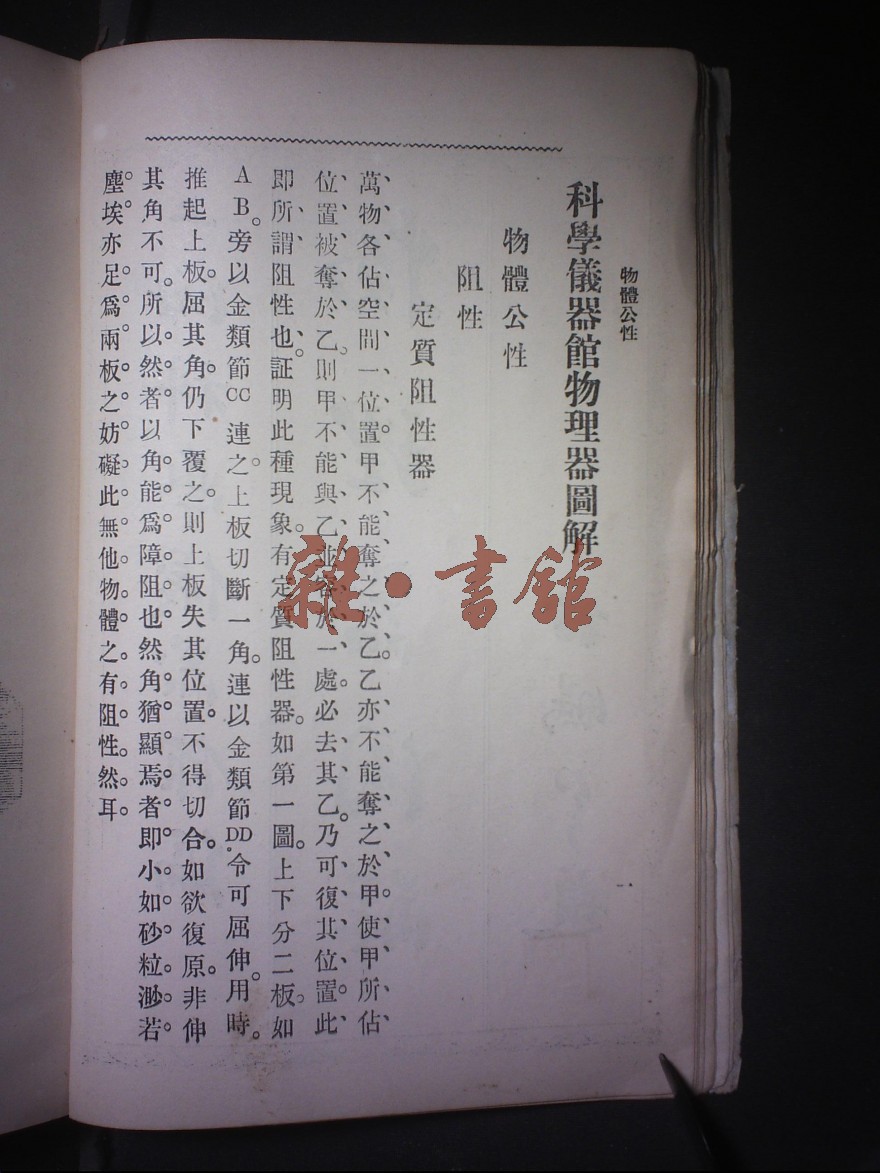 物體公性
科學儀器館物理器圖解
物體公性
阻性
定質阻性器
萬物各佔空間一位置。甲不能奪之於乙。乙亦不能奪之於甲。使甲所佔
位置被奪於乙。則甲不能與乙並容於一處。必去其乙。乃可復其位置。此
即所謂阻性也。証明此種現象。有定質阻性器。如第一圖。上下分二板。如
AB。旁以金類節CC連之。上板切斷一角。連以金類節DD。令可屈伸。用時。
推起上板。屈其角。仍下覆之。則上板失其位置。不得切合。如欲復原。非伸
其角不可。所以然者。以角能爲障阻也。然角猶顯焉者。即小如砂粒。渺若
塵埃。亦足爲兩板之妨礙。此無他。物體之有阻性然耳。
雜·書館